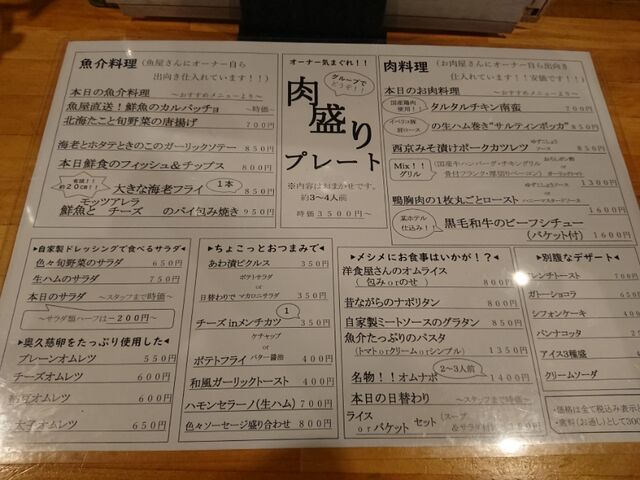 魚介料理（魚屋さんにオーナー自ら
出向き仕入れています！！）
本日の魚介料理 ～おすすめメニューより～
魚屋直送！鮮魚のカルパッチョ ～時価～
北海たこと旬野菜の唐揚げ 700
海老とホタテときのこのガーリックソテー 850
本日鮮食のフィッシュ＆チップス 800
有頭！！
約20cm！！
大きな海老フライ 1本 850
鮮魚とモッツアレラチーズのパイ包み焼き 950
オーナー気まぐれ！！
グループでどうぞ！
肉盛りプレート
※内容はおまかせです。
約3～4人前
時価 3500円～
肉料理（お肉屋さんにオーナー自ら出向き
仕入れています！！安価です！！）
本日のお肉料理 ～おすすめメニューより～
国産鶏肉使用！
タルタルチキン南蛮 700
イベリコ豚肩ロース
の生ハム巻き“サルティンボッカ” 850
西京みそ漬けポークカツレツ ゆずこしょうソース 850
Mix！！グリル
（国産牛ハンバーグ・チキングリル
骨付フランク・厚切りベーコン）
おろしポン酢 or ガーリックトマト 1300
鴨胸肉の1枚丸ごとロースト ゆずこしょうソース or ハニーマスタードソース 1600
某ホテル仕込み！
黒毛和牛のビーフシチュー
（バケット付） 1600
▶自家製ドレッシングで食べるサラダ
色々旬野菜のサラダ 650
生ハムのサラダ 750
本日のサラダ ～スタッフまで時価～
～サラダ類ハーフは－200円～
▶奥久慈卵をたっぷり使用した◀
プレーンオムレツ 550円
チーズオムレツ 600
納豆オムレツ 600
大子オムレツ 650
▶ちょこっとおつまみで◀
あわ漬ピクルス 350
日替わりで ポテトサラダ or マカロニサラダ 350
チーズinメンチカツ 1 350
ポテトフライ ケチャップ or バター醤油 400
和風ガーリックトースト 400
ハモンセラーノ（生ハム） 700
色々ソーセージ盛り合わせ 800
▶メシメにお食事はいかが！？◀
洋食屋さんのオムライス
（包みorのせ） 800
昔ながらのナポリタン 800
自家製ミートソースのグラタン 850
魚介たっぷりのパスタ
（トマトorクリームorシンプル） 1350
名物！！オムナポ 2～3人前 1400
本日の日替わり ～スタッフまで時価～
ライス
orバケット セット（スープ＆サラダ付）
▶別腹なデザート◀
フレンチトースト 700
ガトーショコラ
シフォンケーキ
パンナコッタ
アイス3種盛
クリームソーダ
・価格は全て税込み表示と
・席料（お通し）として300